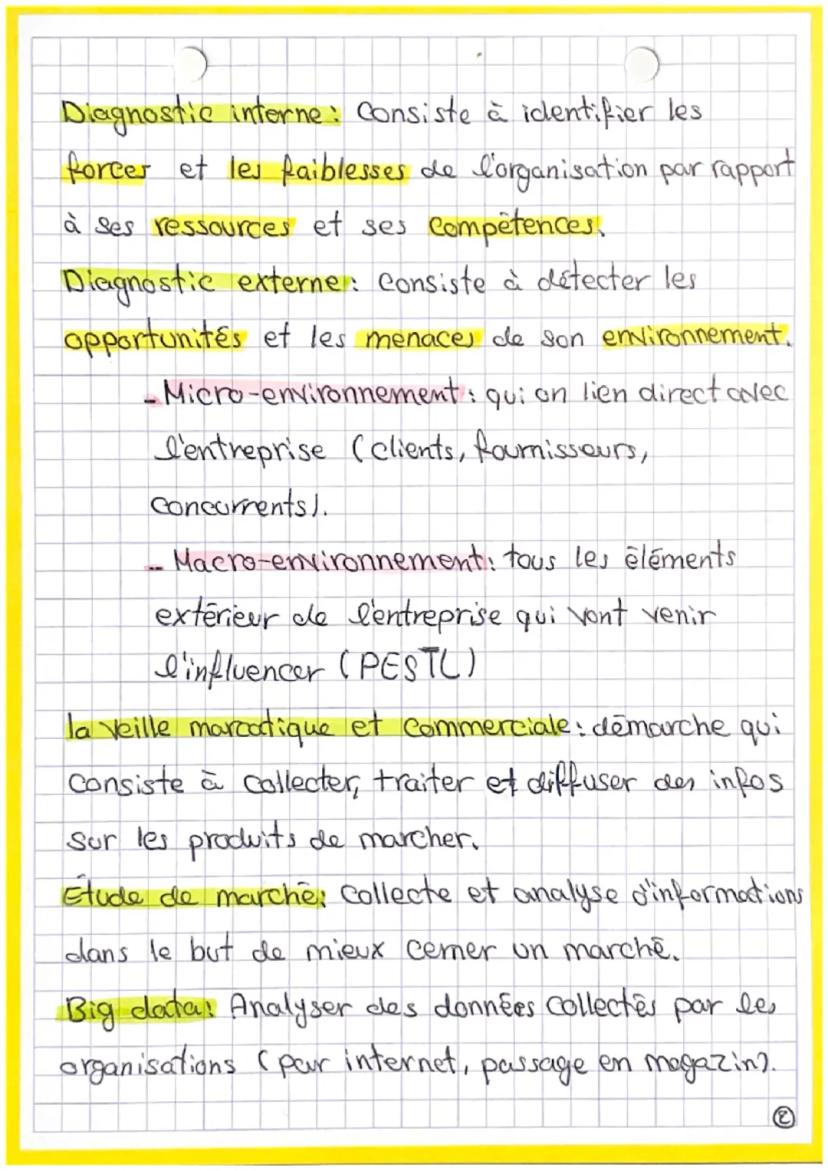 Diagnostic interne : Consiste à identifier les
forces et les faiblesses de l'organisation par rapport
à ses ressources et ses compétences.
Diagnostic externe : consiste à détecter les
opportunités et les menaces de son environnement.
- Micro-environnement : qui on lien direct avec
l'entreprise (clients, fournisseurs,
concurrents).
- Macro-environnement : tous les éléments
extérieur de l'entreprise qui vont venir
l'influencer (PESTL)
la veille marcatique et commerciale : démarche qui
consiste à collecter, traiter et diffuser des infos
sur les produits de marcher.
Etude de marché : collecte et analyse d'informations
dans le but de mieux cerner un marché.
Big data : Analyser des données collectés par les
organisations (par internet, passage en magazin).
2